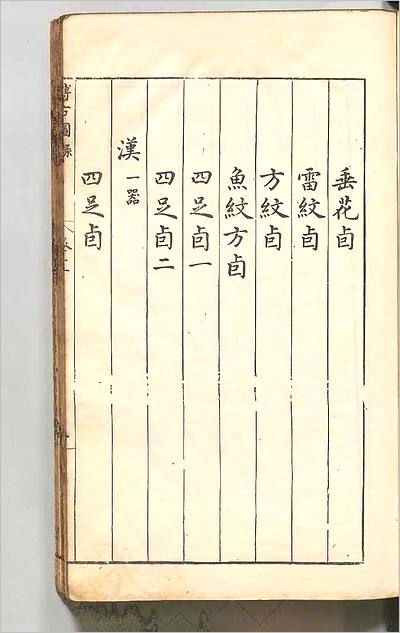 垂花卣
雷紋卣
方紋卣
魚紋方卣
四足卣一
四足卣二
漢一器
四足卣
博古圖録